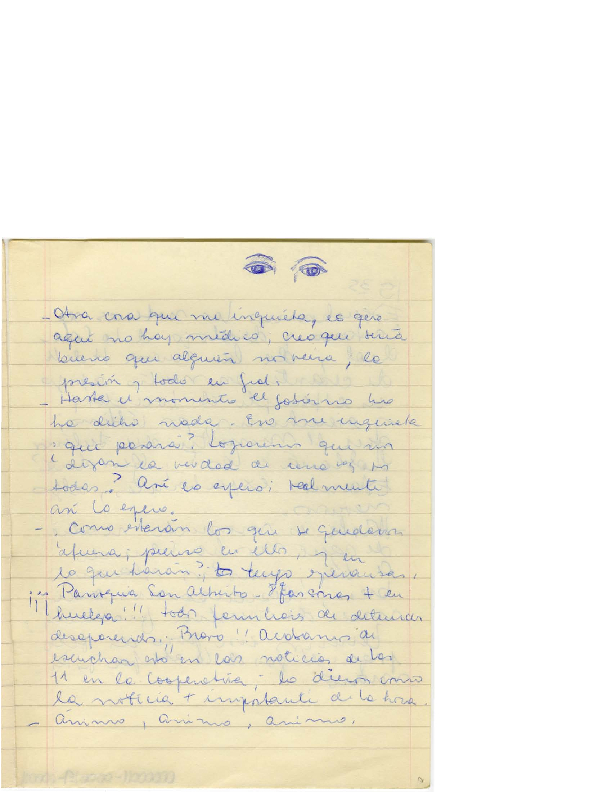 - Otra cosa que me inquieta, es que
aquí no hay médico, creo que sería
bueno que alguien nos viera, la
presión y todo en gral.
- Hasta el momento el gobierno no
ha dicho nada. Eso me inquieta
¿qué pasará? Lograremos que nos
digan la verdad de una vez
todas? Así lo espero; realmente
así lo espero.
- Como estarán los que se quedaron
afuera; pienso en ellos, y en
lo que harán?; tengo esperanzas.
¡¡¡ Parroquia San Alberto - personas + en
huelga!!! todos familiares de detenidos
desaparecidos. Bravo!! Acabamos de
escuchar esto en las noticias de las
11 en la Cooperativa; la dieron como
la noticia + importante de la hora.
- Ánimo, ánimo, ánimo.